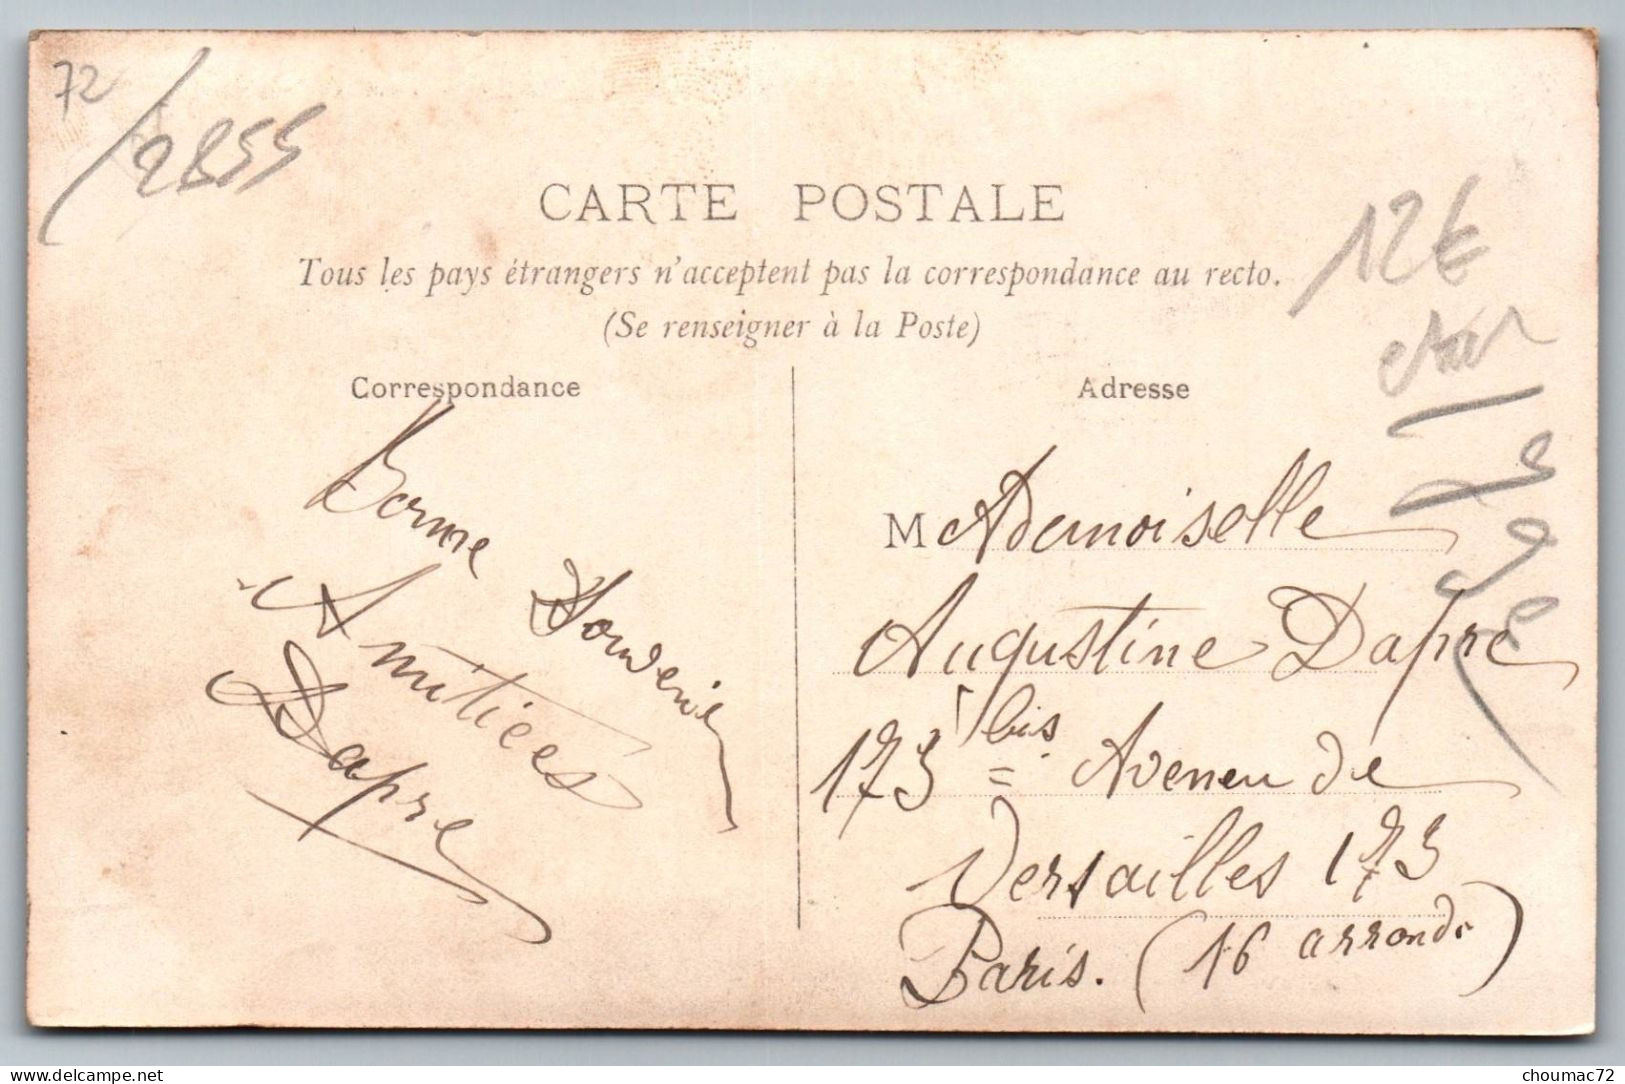 72
/2855
CARTE POSTALE
Tous les pays étrangers n'acceptent pas la correspondance au recto.
(Se renseigner à la Poste)
12€
Correspondance
Bonne Souvenir
Amitiées
Dapre
Adresse
MAdemoiselle
Augustine Dapre
173 bis = Aveneu de
Versailles 173
Paris. (16 arronde)
delcampe.net
choumac72